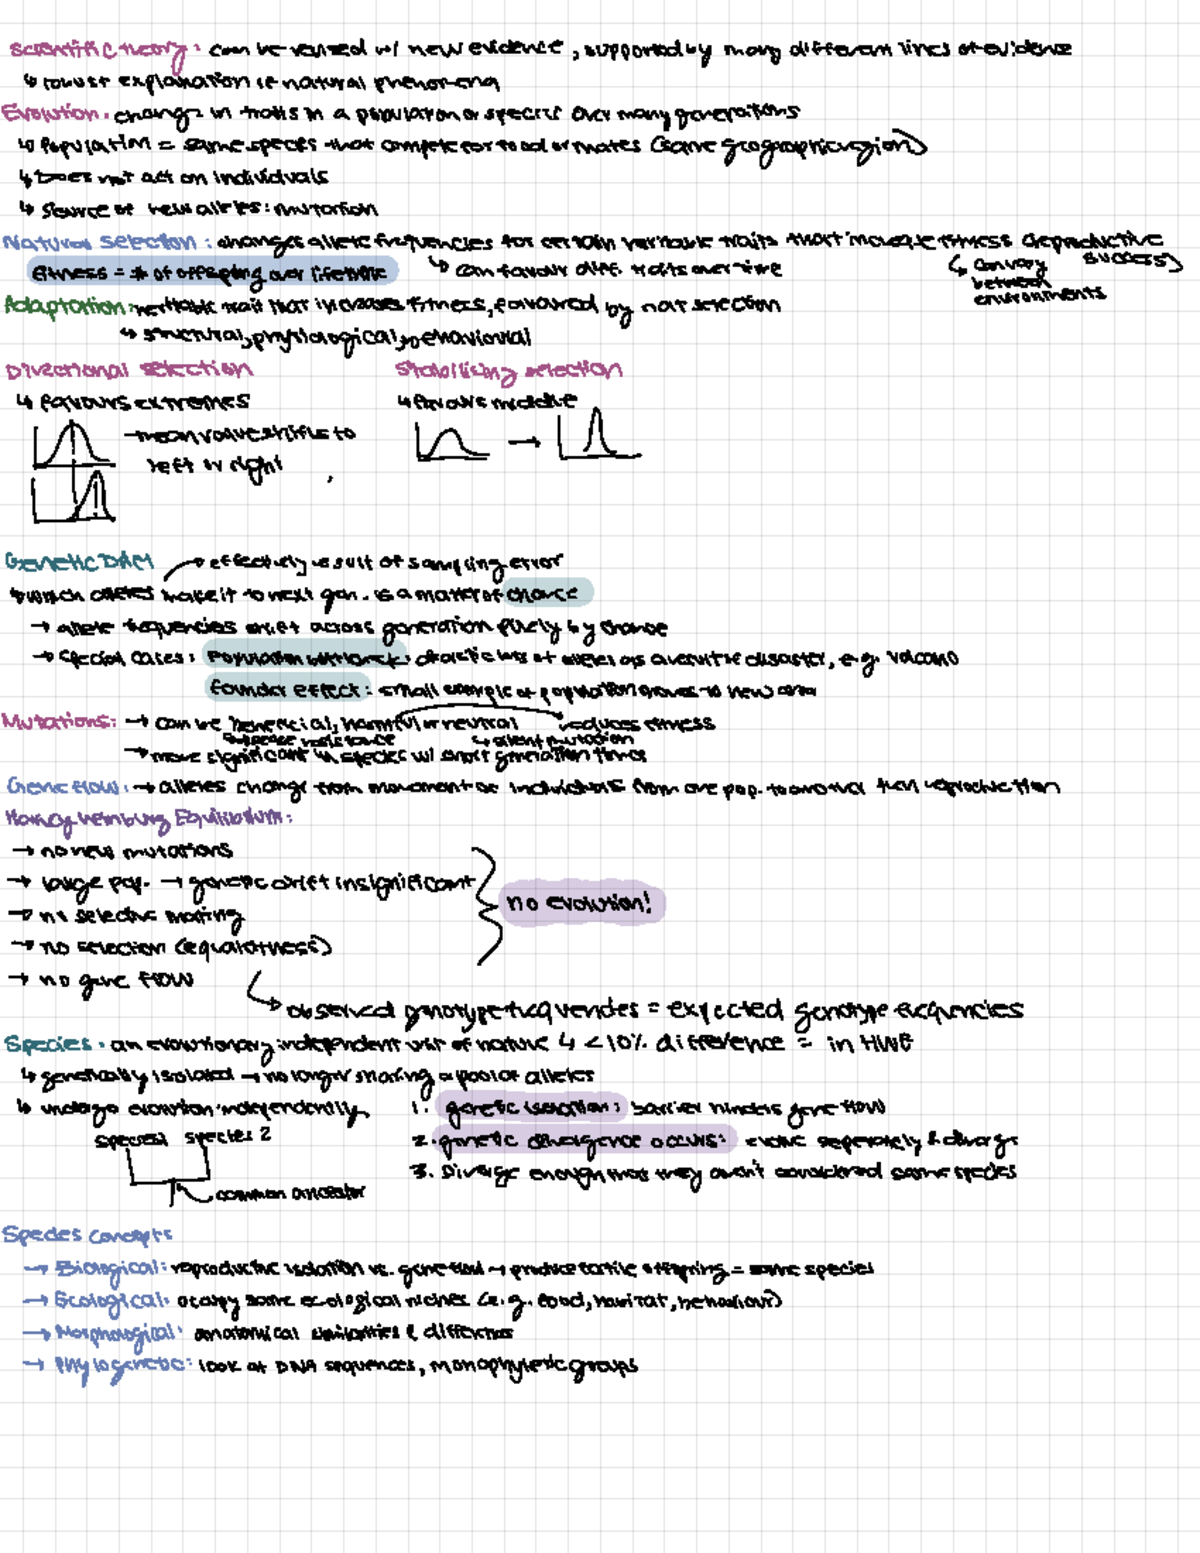 Scientific theory: can be revised w/ new evidence, supported by many different lines of evidence
↳ robust explanation of natural phenomena
Evolution: change in traits in a population or species over many generations
↳ Population = same species that compete for food or mates (same geographic region)
↳ Does not act on individuals
↳ Source of new alleles: mutation
Natural selection: changes allele frequencies for certain heritable traits that increase fitness (reproductive success)
fitness = # of offspring over lifetime
↳ can favour diff. traits over time
↳ can vary between environments
Adaptation: heritable trait that increases fitness, favoured by nat selection
↳ structural, physiological, behavioural
Directional selection
Stabilising selection
↳ favours extremes
↳ favours middle
→ mean value shifts to left or right
Genetic Drift
→ effectively result of sampling error
↳ which alleles make it to next gen. is a matter of chance
→ allele frequencies drift across generation purely by chance
→ special cases: Population bottleneck: drastic loss of alleles disaster, e.g. volcano
founder effect: small sample of population moves to new area
Mutations: → can be beneficial, harmful or neutral
reduces fitness
disease resistance
↳ silent mutation
→ more significant in species w/ short generation times
Gene flow: → alleles change from movement of individuals from one pop. to another then reproduction
Hardy Weinburg Equilibrium:
→ no new mutations
→ large pop. → genetic drift insignificant
→ no selective mating
→ no selection (equal fitness)
→ no gene flow
no evolution!
↳ observed genotype frequencies = expected genotype frequencies
↳ <10% difference = in HWE
Species: an evolutionary independent unit of nature
↳ genetically isolated → no longer sharing a pool of alleles
↳ undergo evolution independently
species 1 species 2
common ancestor
1. genetic isolation: barrier hinders gene flow
2. genetic divergence occurs: evolve seperately & diverge
3. Diverge enough that they aren't considered same species
Species concepts
→ Biological: reproductive isolation vs. gene flow → produce fertile offspring = same species
→ Ecological: occupy same ecological niches (e.g. food, habitat, behaviour)
→ Morphological: anatomical similarities & differences
→ Phylogenetic: look at DNA sequences, monophyletic groups